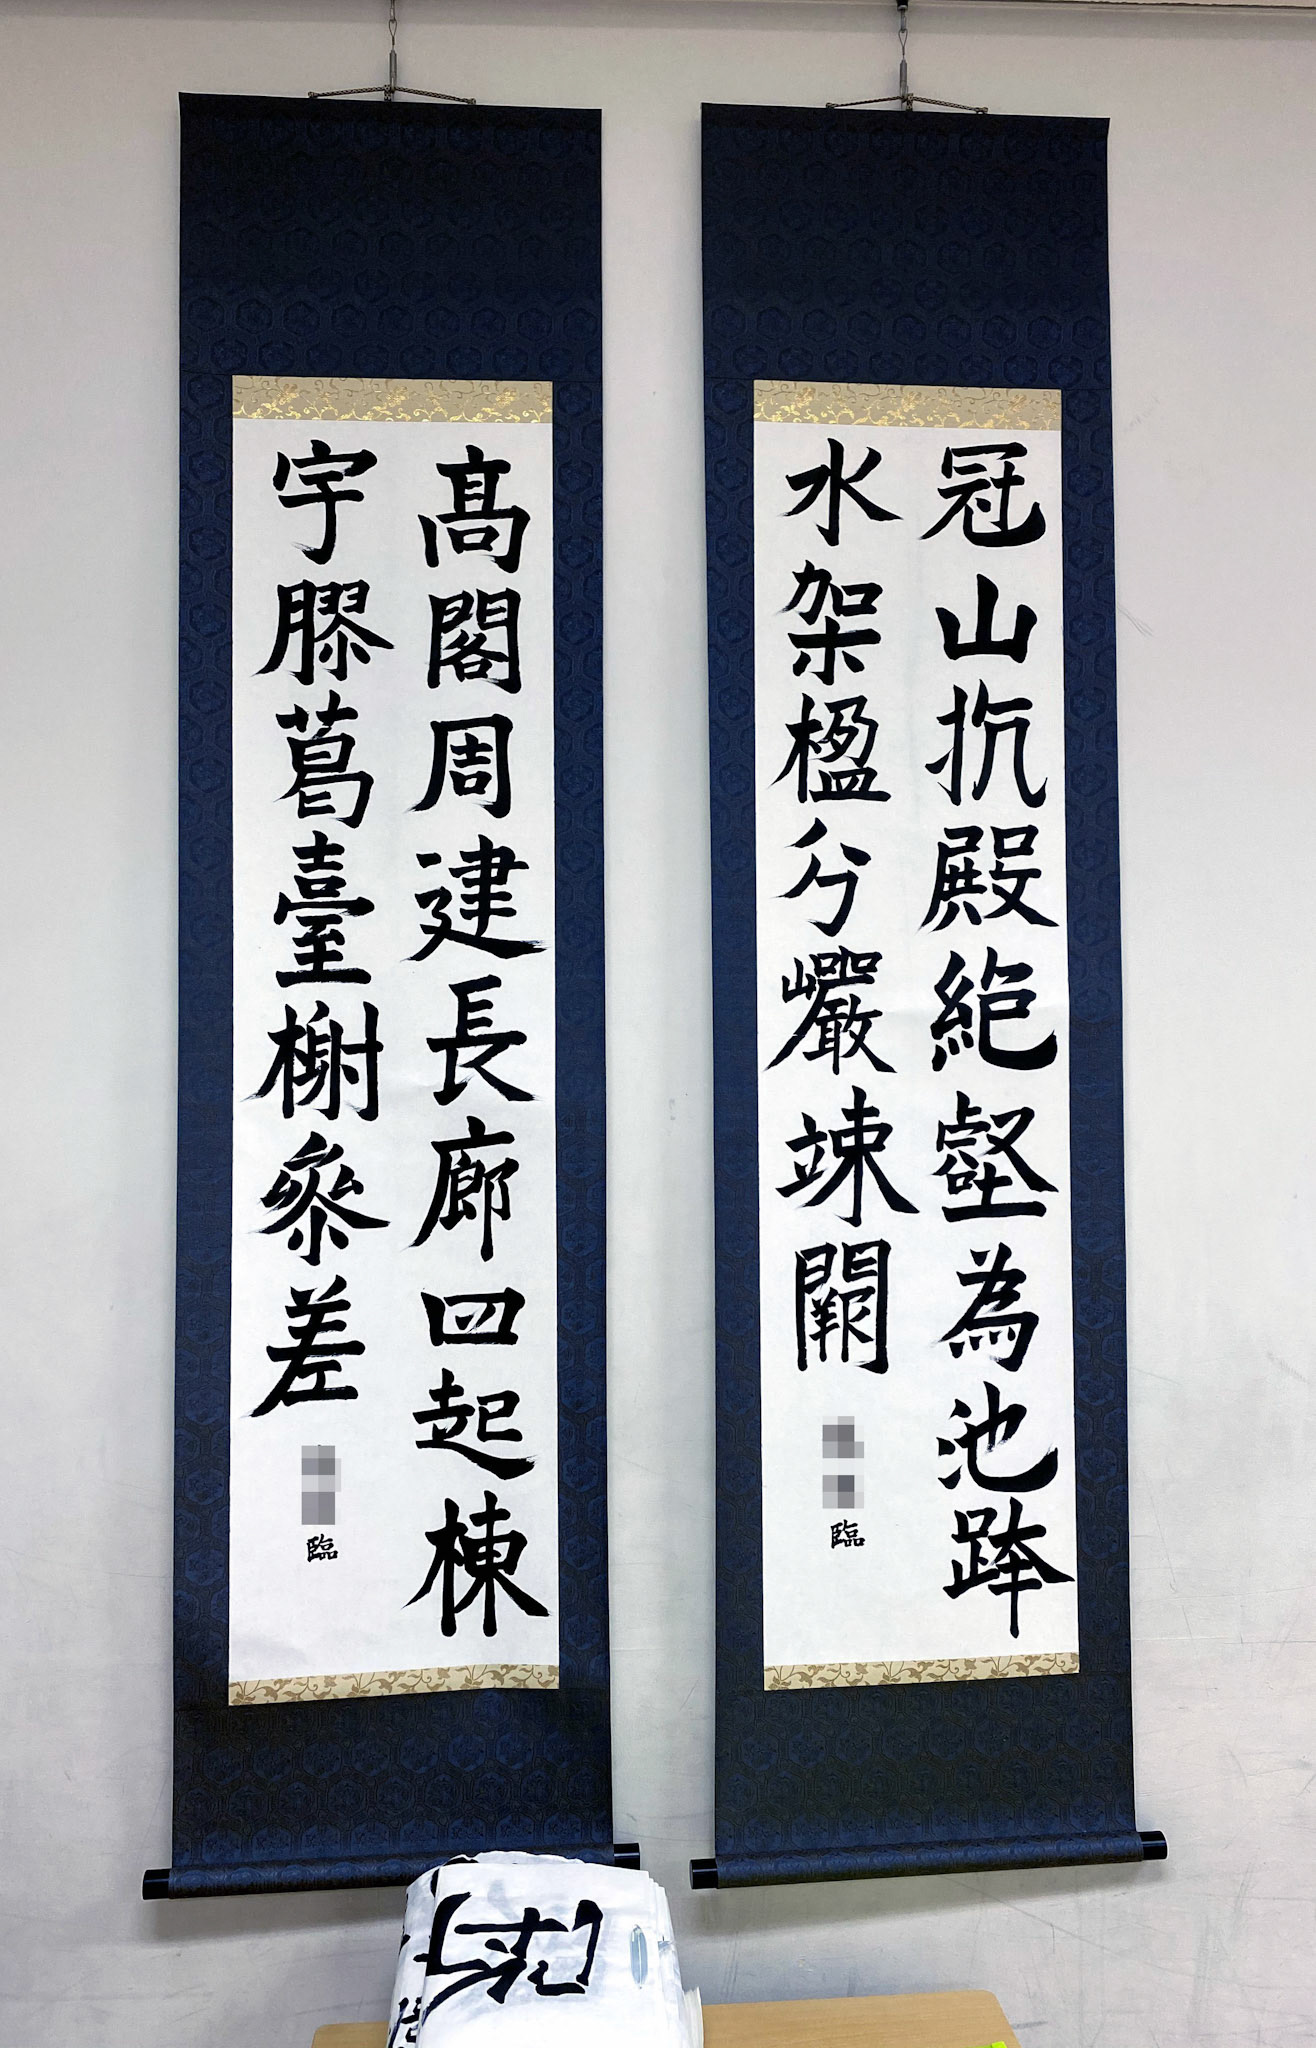 冠山抗殿絶壑為池跨
水架楹分巖竦闕
臨
高閣周建長廊四起棟
宇膠葛臺榭參差
臨